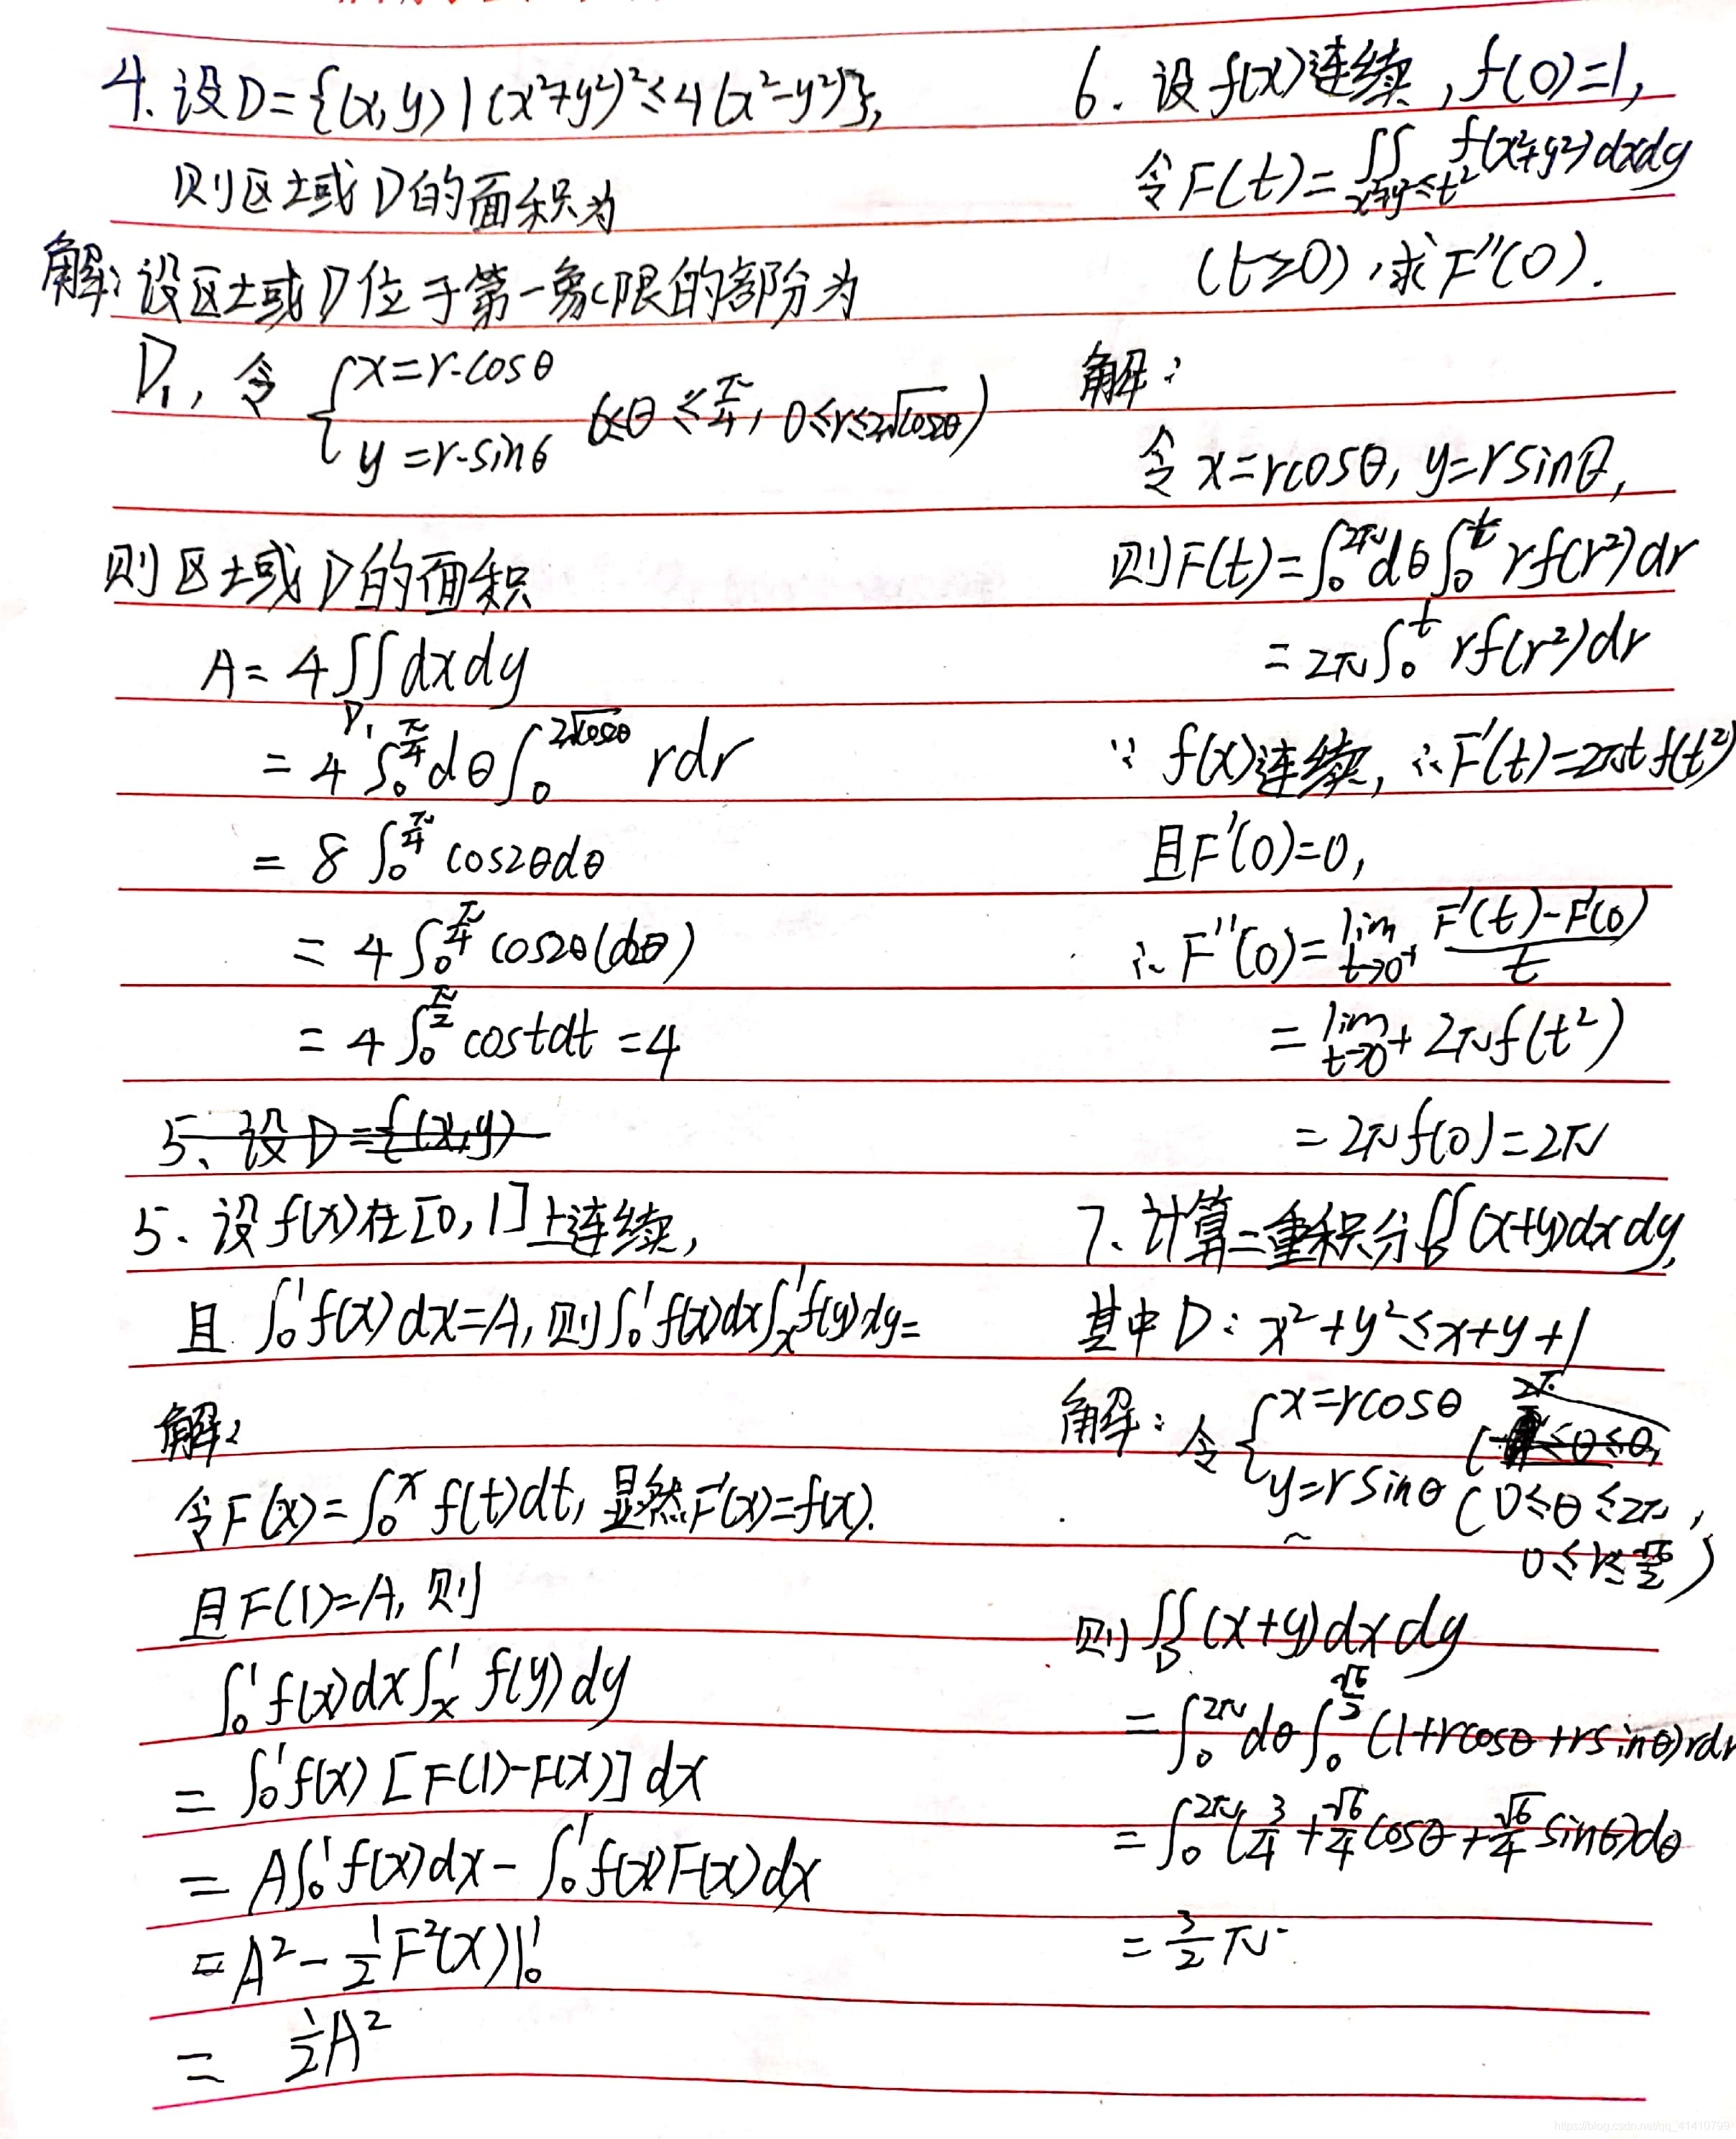 4. 设D={(x,y)|(x²+y²)²≤4(x²-y²)},
则区域D的面积为
解: 设区域D位于第一象限的部分为
D₁, 令 { x=r·cosθ
y=r·sinθ (0≤θ≤π/4, 0≤r≤2√cos2θ)
则区域D的面积
A=4∬dxdy
D₁
=4∫₀^(π/4)dθ∫₀^(2√cos2θ) rdr
=8∫₀^(π/4)cos2θdθ
=4∫₀^(π/4)cos2θ(d2θ)
=4∫₀^(π/2)costdt=4
5、设D={(x,y)
5、设f(x)在[0,1]上连续,
且∫₀¹f(x)dx=A, 则∫₀¹f(x)dx∫ₓ¹f(y)dy=
解:
令F(x)=∫₀ˣf(t)dt, 显然F'(x)=f(x).
且F(1)=A, 则
∫₀¹f(x)dx∫ₓ¹f(y)dy
=∫₀¹f(x)[F(1)-F(x)]dx
=A∫₀¹f(x)dx-∫₀¹f(x)F(x)dx
=A²-½F²(x)|₀¹
=½A²
6. 设f(x)连续, f(0)=1,
令F(t)=∬f(x²+y²)dxdy
x²+y²≤t²
(t≥0), 求F''(0).
解:
令x=rcosθ, y=rsinθ,
则F(t)=∫₀^(2π)dθ∫₀ᵗrf(r²)dr
=2π∫₀ᵗrf(r²)dr
∵f(x)连续, ∴F'(t)=2πtf(t²)
且F'(0)=0,
∴F''(0)=lim t→0⁺ (F'(t)-F'(0))/t
=lim t→0⁺ 2πf(t²)
=2πf(0)=2π
7、计算二重积分∬(x+y)dxdy,
D
其中D: x²+y²≤x+y+1
解: 令 { x=rcosθ
y=rsinθ (0≤θ≤2π,
0≤r≤√6/2)
则∬(x+y)dxdy
D
=∫₀^(2π)dθ∫₀^(√6/2)(1+rcosθ+rsinθ)rdr
=∫₀^(2π)(3/4+√6/4cosθ+√6/4sinθ)dθ
=3/2π
https://blog.csdn.net/qq_41410799